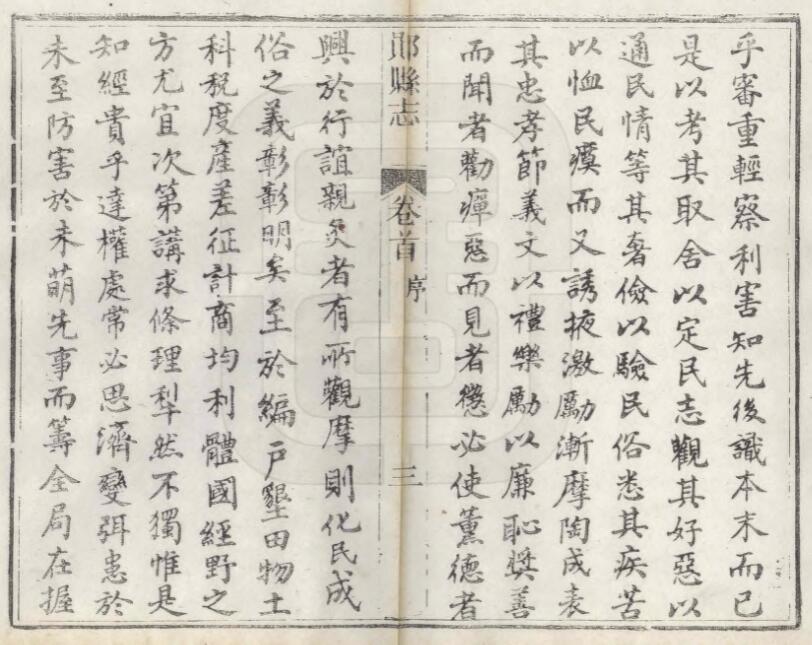 乎審重輕察利害知先後識本末而已
是以考其取舍以定民志觀其好惡以
通民情等其奢儉以驗民俗悉其疾苦
以恤民瘼而又誘掖激勵漸摩陶成表
其忠孝節義文以禮樂勵以廉恥奬善
而聞者勸癉惡而見者懲必使薰德者
鄖縣志 卷首 序 三
興於行誼親炙者有所觀摩則化民成
俗之義彰彰明矣至於編戸墾田物土
科稅度產差征計商均利體國經野之
方尤宜次第講求條理犂然不獨惟是
知經貴乎達權處常必思濟變弭患於
未至防害於未萌先事而籌全局在握